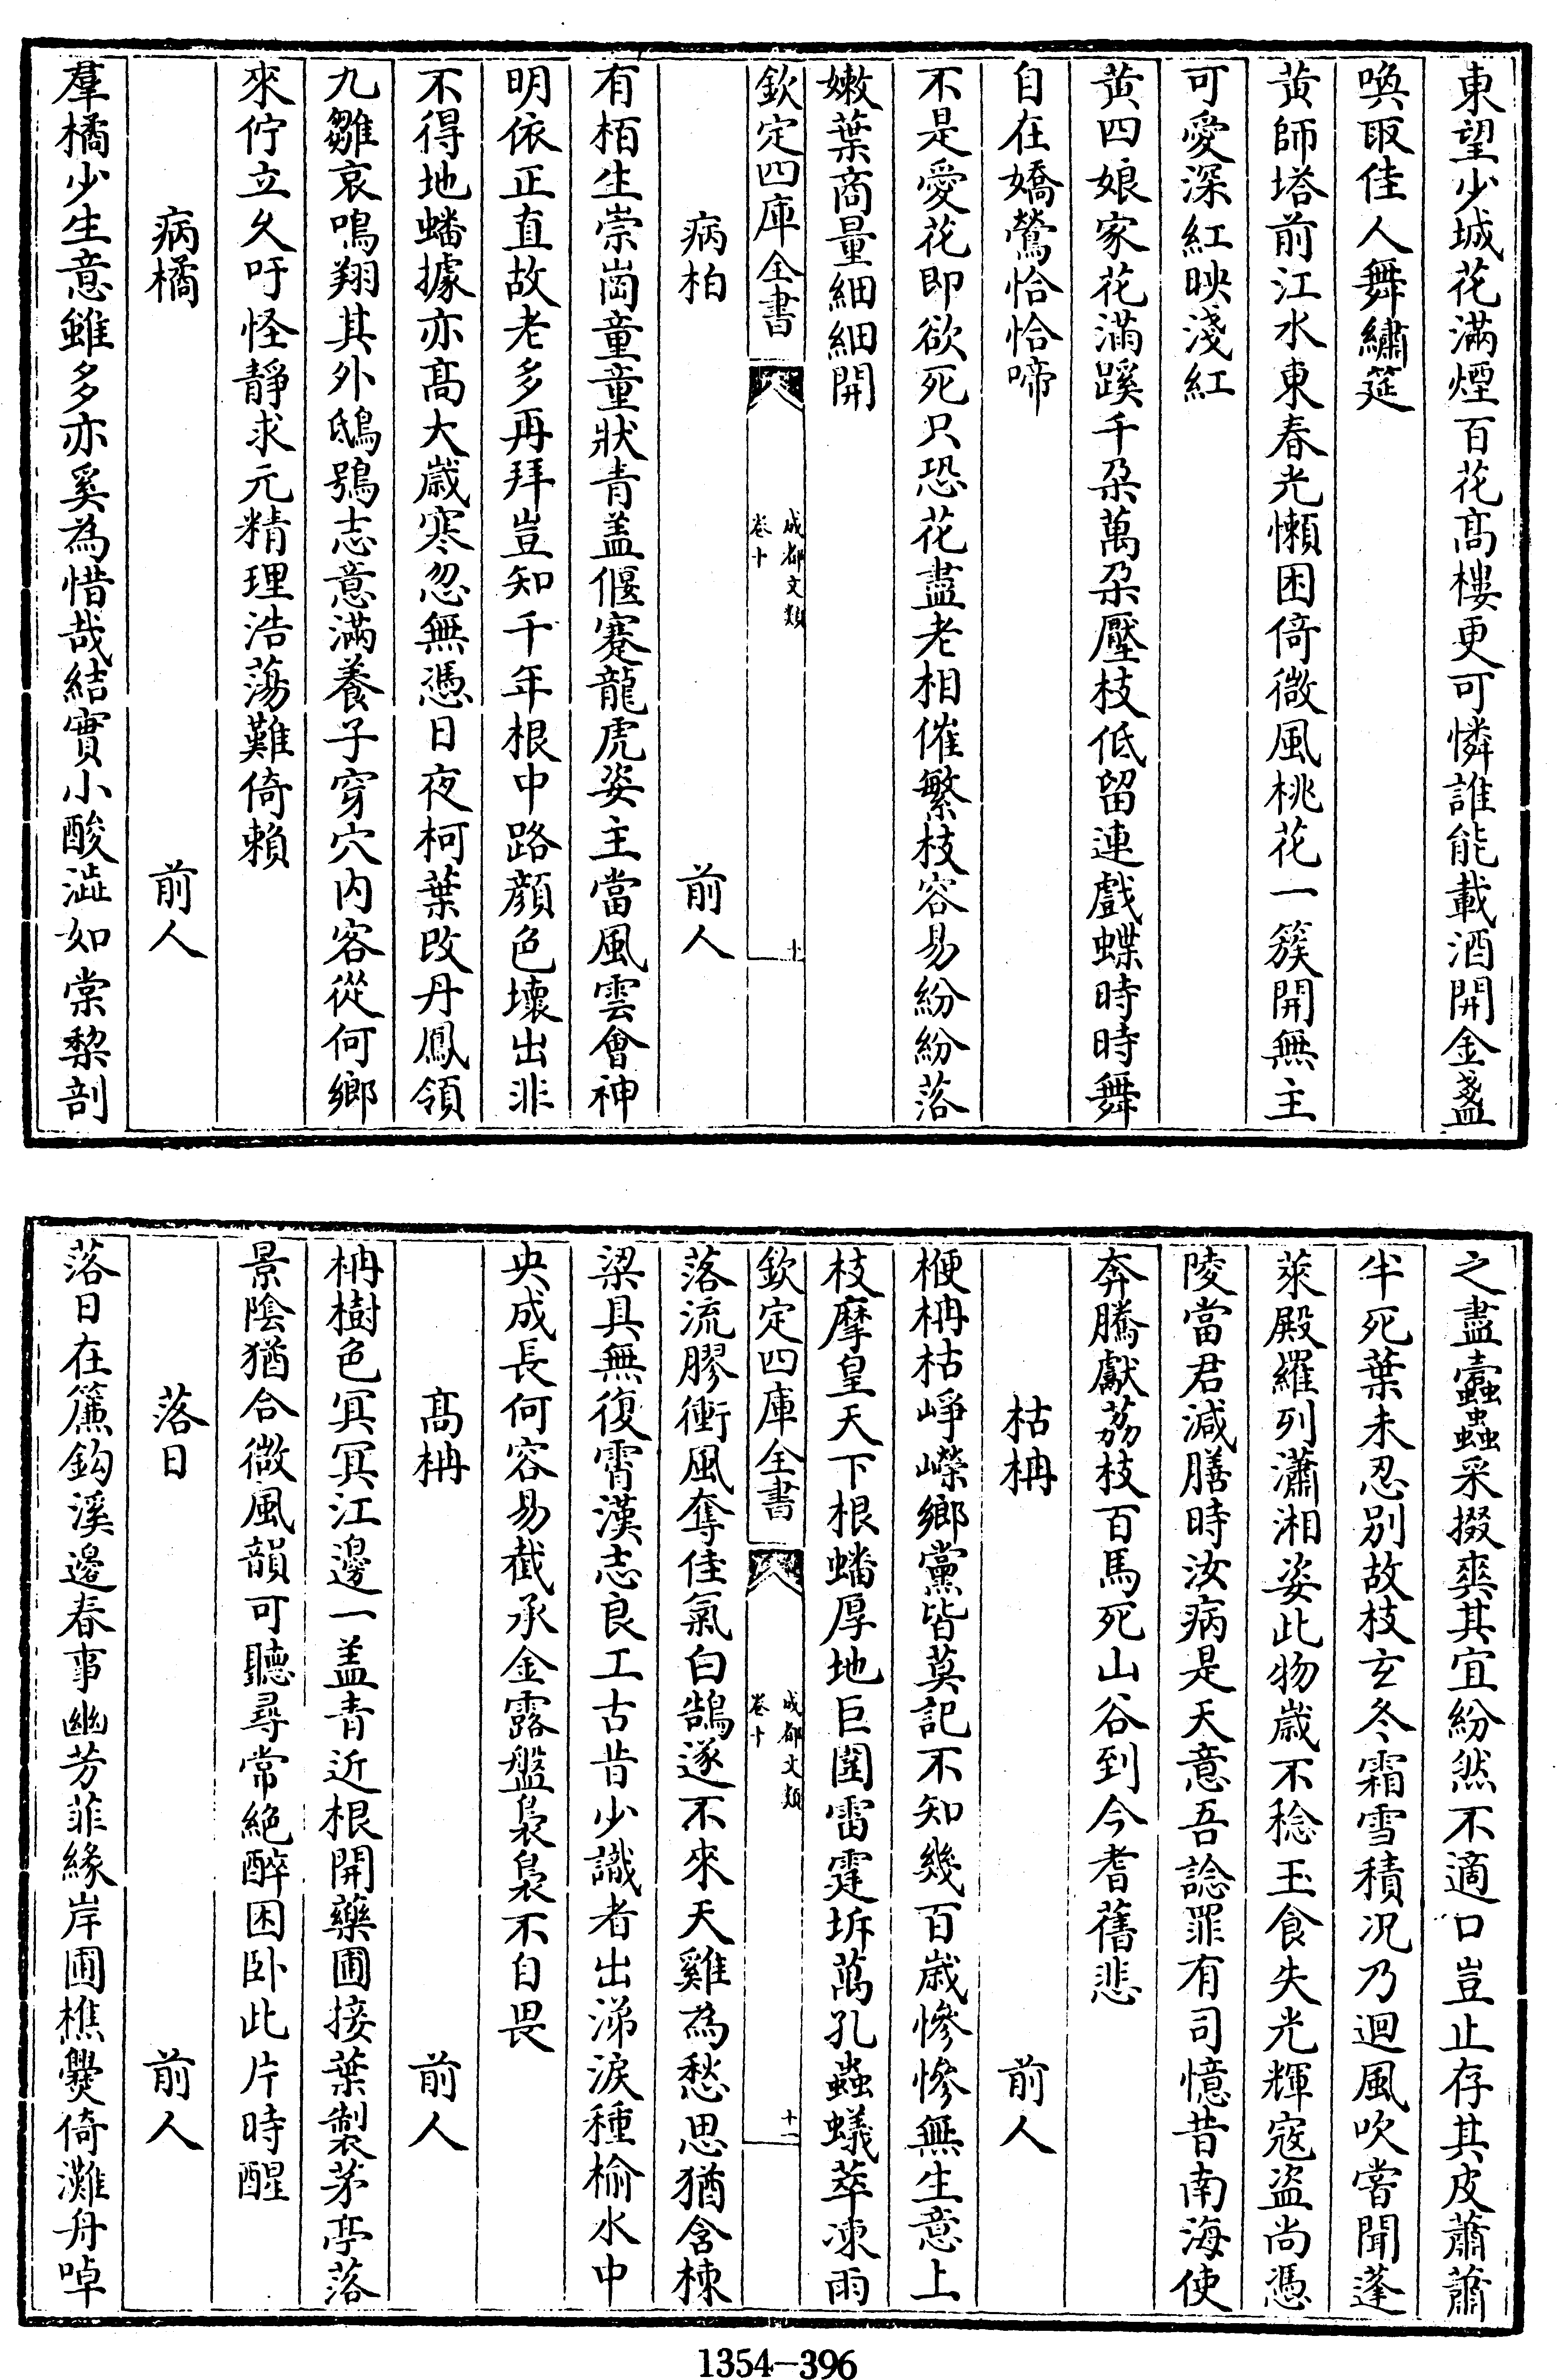 東望少城花滿煙百花髙樓更可憐誰能載酒開金盞
喚取佳人舞繡筵
黃師塔前江水東春光懶困倚微風桃花一簇開無主
可愛深紅映淺紅
黃四娘家花滿蹊千朶萬朶壓枝低留連戲蝶時時舞
自在嬌鶯恰恰啼
不是愛花即欲死只恐花盡老相催繁枝容易紛紛落
嫩葉商量細細開
欽定四庫全書
成都文類
卷十
十
病柏 前人
有栢生崇崗童童狀青蓋偃蹇龍虎姿主當風雲會神
明依正直故老多再拜豈知千年根中路顔色壞出非
不得地蟠據亦髙大歳寒忽無憑日夜柯葉改丹鳳領
九雛哀鳴翔其外鴟鴞志意滿養子穿穴內客從何鄉
來佇立久吁怪靜求元精理浩蕩難倚賴
病橘 前人
羣橘少生意雖多亦奚為惜哉結實小酸澁如棠棃剖
之盡蠧蟲采掇爽其宜紛然不適口豈止存其皮蕭蕭
半死葉未忍別故枝玄冬霜雪積况乃迴風吹嘗聞蓬
萊殿羅列瀟湘姿此物歳不稔玉食失光輝寇盜尚憑
陵當君減膳時汝病是天意吾諗罪有司憶昔南海使
奔騰獻荔枝百馬死山谷到今耆舊悲
枯柟 前人
楩柟枯崢嶸鄉黨皆莫記不知幾百歳慘慘無生意上
枝摩皇天下根蟠厚地巨圍雷霆坼萬孔蟲蟻萃凍雨
落流膠衝風奪佳氣白鵠遂不來天雞為愁思猶含棟
梁具無復霄漢志良工古昔少識者出涕淚種榆水中
央成長何容易截承金露盤裊裊不自畏
髙柟 前人
柟樹色冥冥江邊一蓋青近根開藥圃接葉製茅亭落
景陰猶合微風韻可聽尋常絕醉困卧此片時醒
落日 前人
落日在簾鈎溪邊春事幽芳菲緣岸圃樵爨倚灘舟啅
欽定四庫全書
成都文類
卷十
十一
1354-396